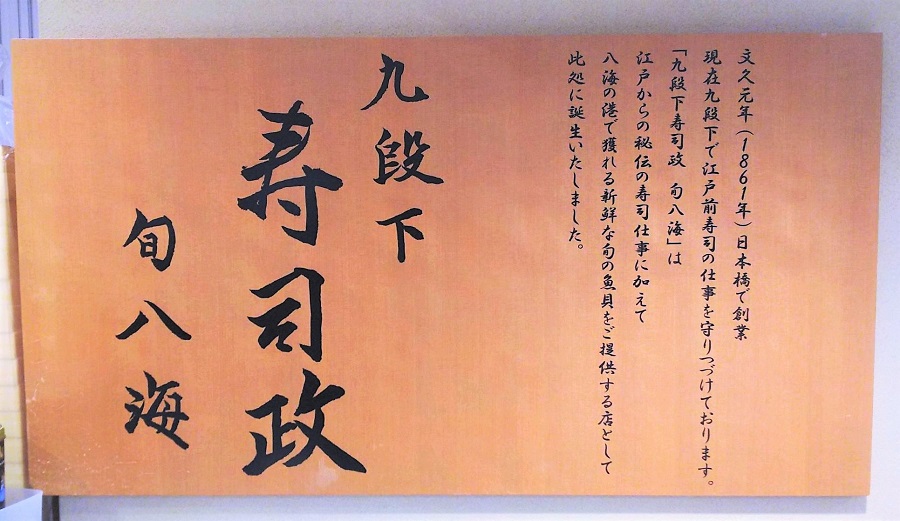 文久元年(1861年)日本橋で創業
現在九段下で江戸前寿司の仕事を守りつづけております。
「九段下寿司政 旬八海」は
江戸からの秘伝の寿司仕事に加えて
八海の港で獲れる新鮮な旬の魚貝をご提供する店として
此処に誕生いたしました。
九段下
寿司政
旬八海